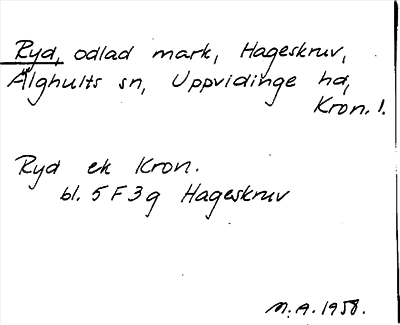 Ryd, odlad mark, Hageskruv,
Älghults sn, Uppvidinge hd,
Kron. l.
Ryd ek Kron.
bl. 5 F 3 g Hageskruv
M. A. 1958.